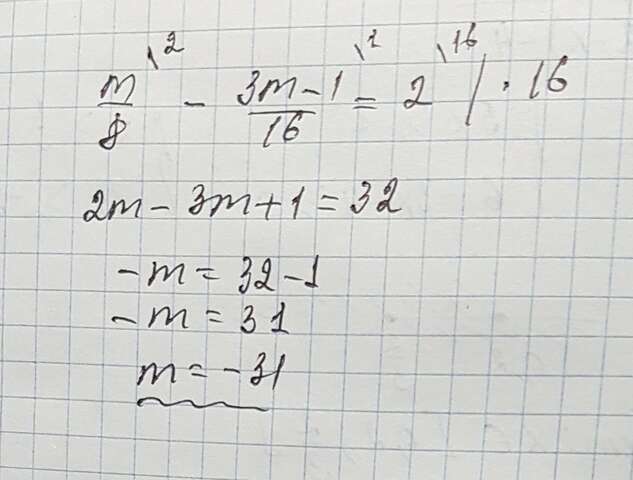 m/8 \2 - (3m-1)/16 \1 = 2 \16 / · 16
2m - 3m + 1 = 32
-m = 32 - 1
-m = 31
m = -31